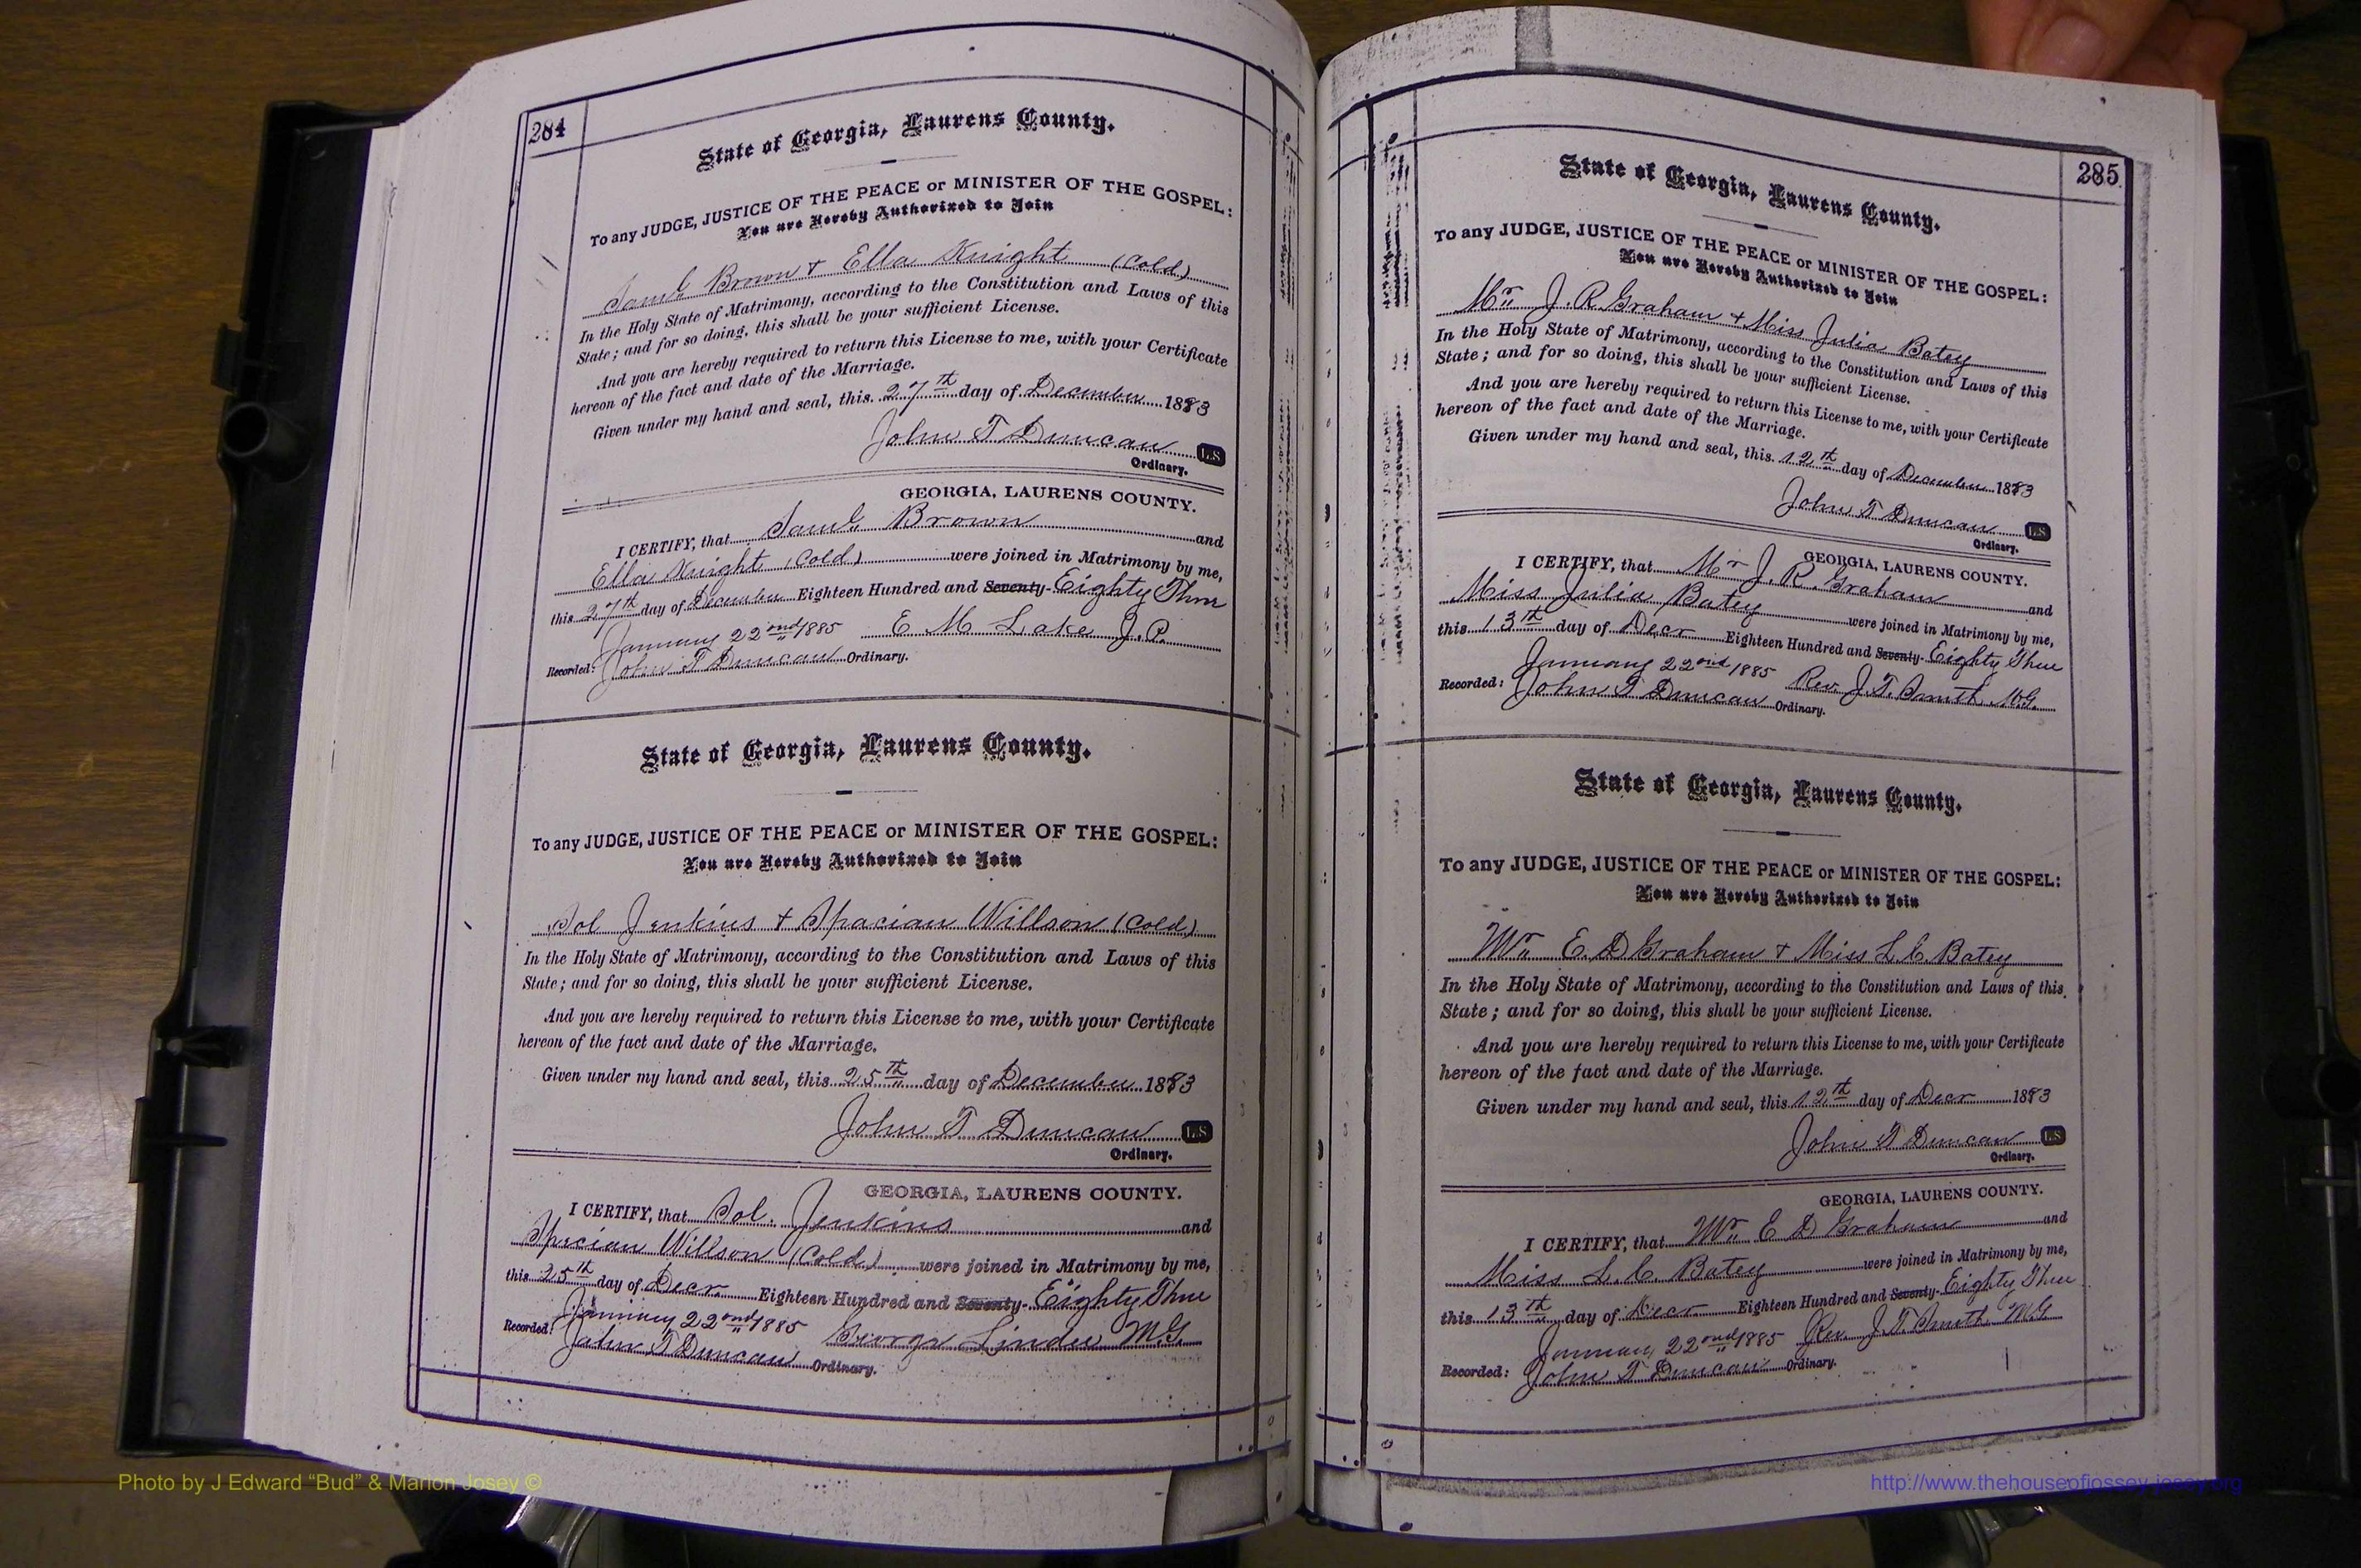 284
State of Georgia, Laurens County.
To any JUDGE, JUSTICE OF THE PEACE or MINISTER OF THE GOSPEL:
You are Hereby Authorized to Join
Saml Brown & Ella Knight (Cold)
In the Holy State of Matrimony, according to the Constitution and Laws of this
State; and for so doing, this shall be your sufficient License.
And you are hereby required to return this License to me, with your Certificate
hereon of the fact and date of the Marriage.
Given under my hand and seal, this 27th day of December 1883
John T Duncan L.S
Ordinary.
GEORGIA, LAURENS COUNTY.
I CERTIFY, that Saml Brown and
Ella Knight (Cold) were joined in Matrimony by me,
this 27th day of December Eighteen Hundred and Seventy- Eighty Three
January 22nd 1885 E M Lake J.P.
Recorded: John T Duncan Ordinary.
State of Georgia, Laurens County.
To any JUDGE, JUSTICE OF THE PEACE or MINISTER OF THE GOSPEL:
You are Hereby Authorized to Join
Sol Jenkins & Spacian Willson (Cold)
In the Holy State of Matrimony, according to the Constitution and Laws of this
State; and for so doing, this shall be your sufficient License.
And you are hereby required to return this License to me, with your Certificate
hereon of the fact and date of the Marriage.
Given under my hand and seal, this 25th day of December 1883
John T Duncan L.S
Ordinary.
GEORGIA, LAURENS COUNTY.
I CERTIFY, that Sol. Jenkins and
Willson (Cold) were joined in Matrimony by me,
this 25th day of Decr Eighteen Hundred and Seventy- Eighty Three
January 22nd 1885 George Linder M.G.
Recorded: John T Duncan Ordinary.
285
State of Georgia, Laurens County.
To any JUDGE, JUSTICE OF THE PEACE or MINISTER OF THE GOSPEL:
You are Hereby Authorized to Join
Mr J. R. Graham & Miss Julia Batey
In the Holy State of Matrimony, according to the Constitution and Laws of this
State; and for so doing, this shall be your sufficient License.
And you are hereby required to return this License to me, with your Certificate
hereon of the fact and date of the Marriage.
Given under my hand and seal, this 12th day of December 1883
John T Duncan L.S
Ordinary.
GEORGIA, LAURENS COUNTY.
I CERTIFY, that Mr J. R. Graham and
Miss Julia Batey were joined in Matrimony by me,
this 13th day of Decr Eighteen Hundred and Seventy- Eighty Three
January 22nd 1885 Rev. J. T. Smith M.G.
Recorded: John T Duncan Ordinary.
State of Georgia, Laurens County.
To any JUDGE, JUSTICE OF THE PEACE or MINISTER OF THE GOSPEL:
You are Hereby Authorized to Join
Mr E. D Graham & Miss L. C. Batey
In the Holy State of Matrimony, according to the Constitution and Laws of this
State; and for so doing, this shall be your sufficient License.
And you are hereby required to return this License to me, with your Certificate
hereon of the fact and date of the Marriage.
Given under my hand and seal, this 12th day of Decr 1883
John T Duncan L.S
Ordinary.
GEORGIA, LAURENS COUNTY.
I CERTIFY, that Mr E D Graham and
Miss L. C. Batey were joined in Matrimony by me,
this 13th day of Decr Eighteen Hundred and Seventy- Eighty Three
January 22nd 1885 Rev. J. T. Smith M.G
Recorded: John T Duncan Ordinary.
Photo by J Edward “Bud” & Marion Josey ©
http://www.thehouseofjossey-josey.org